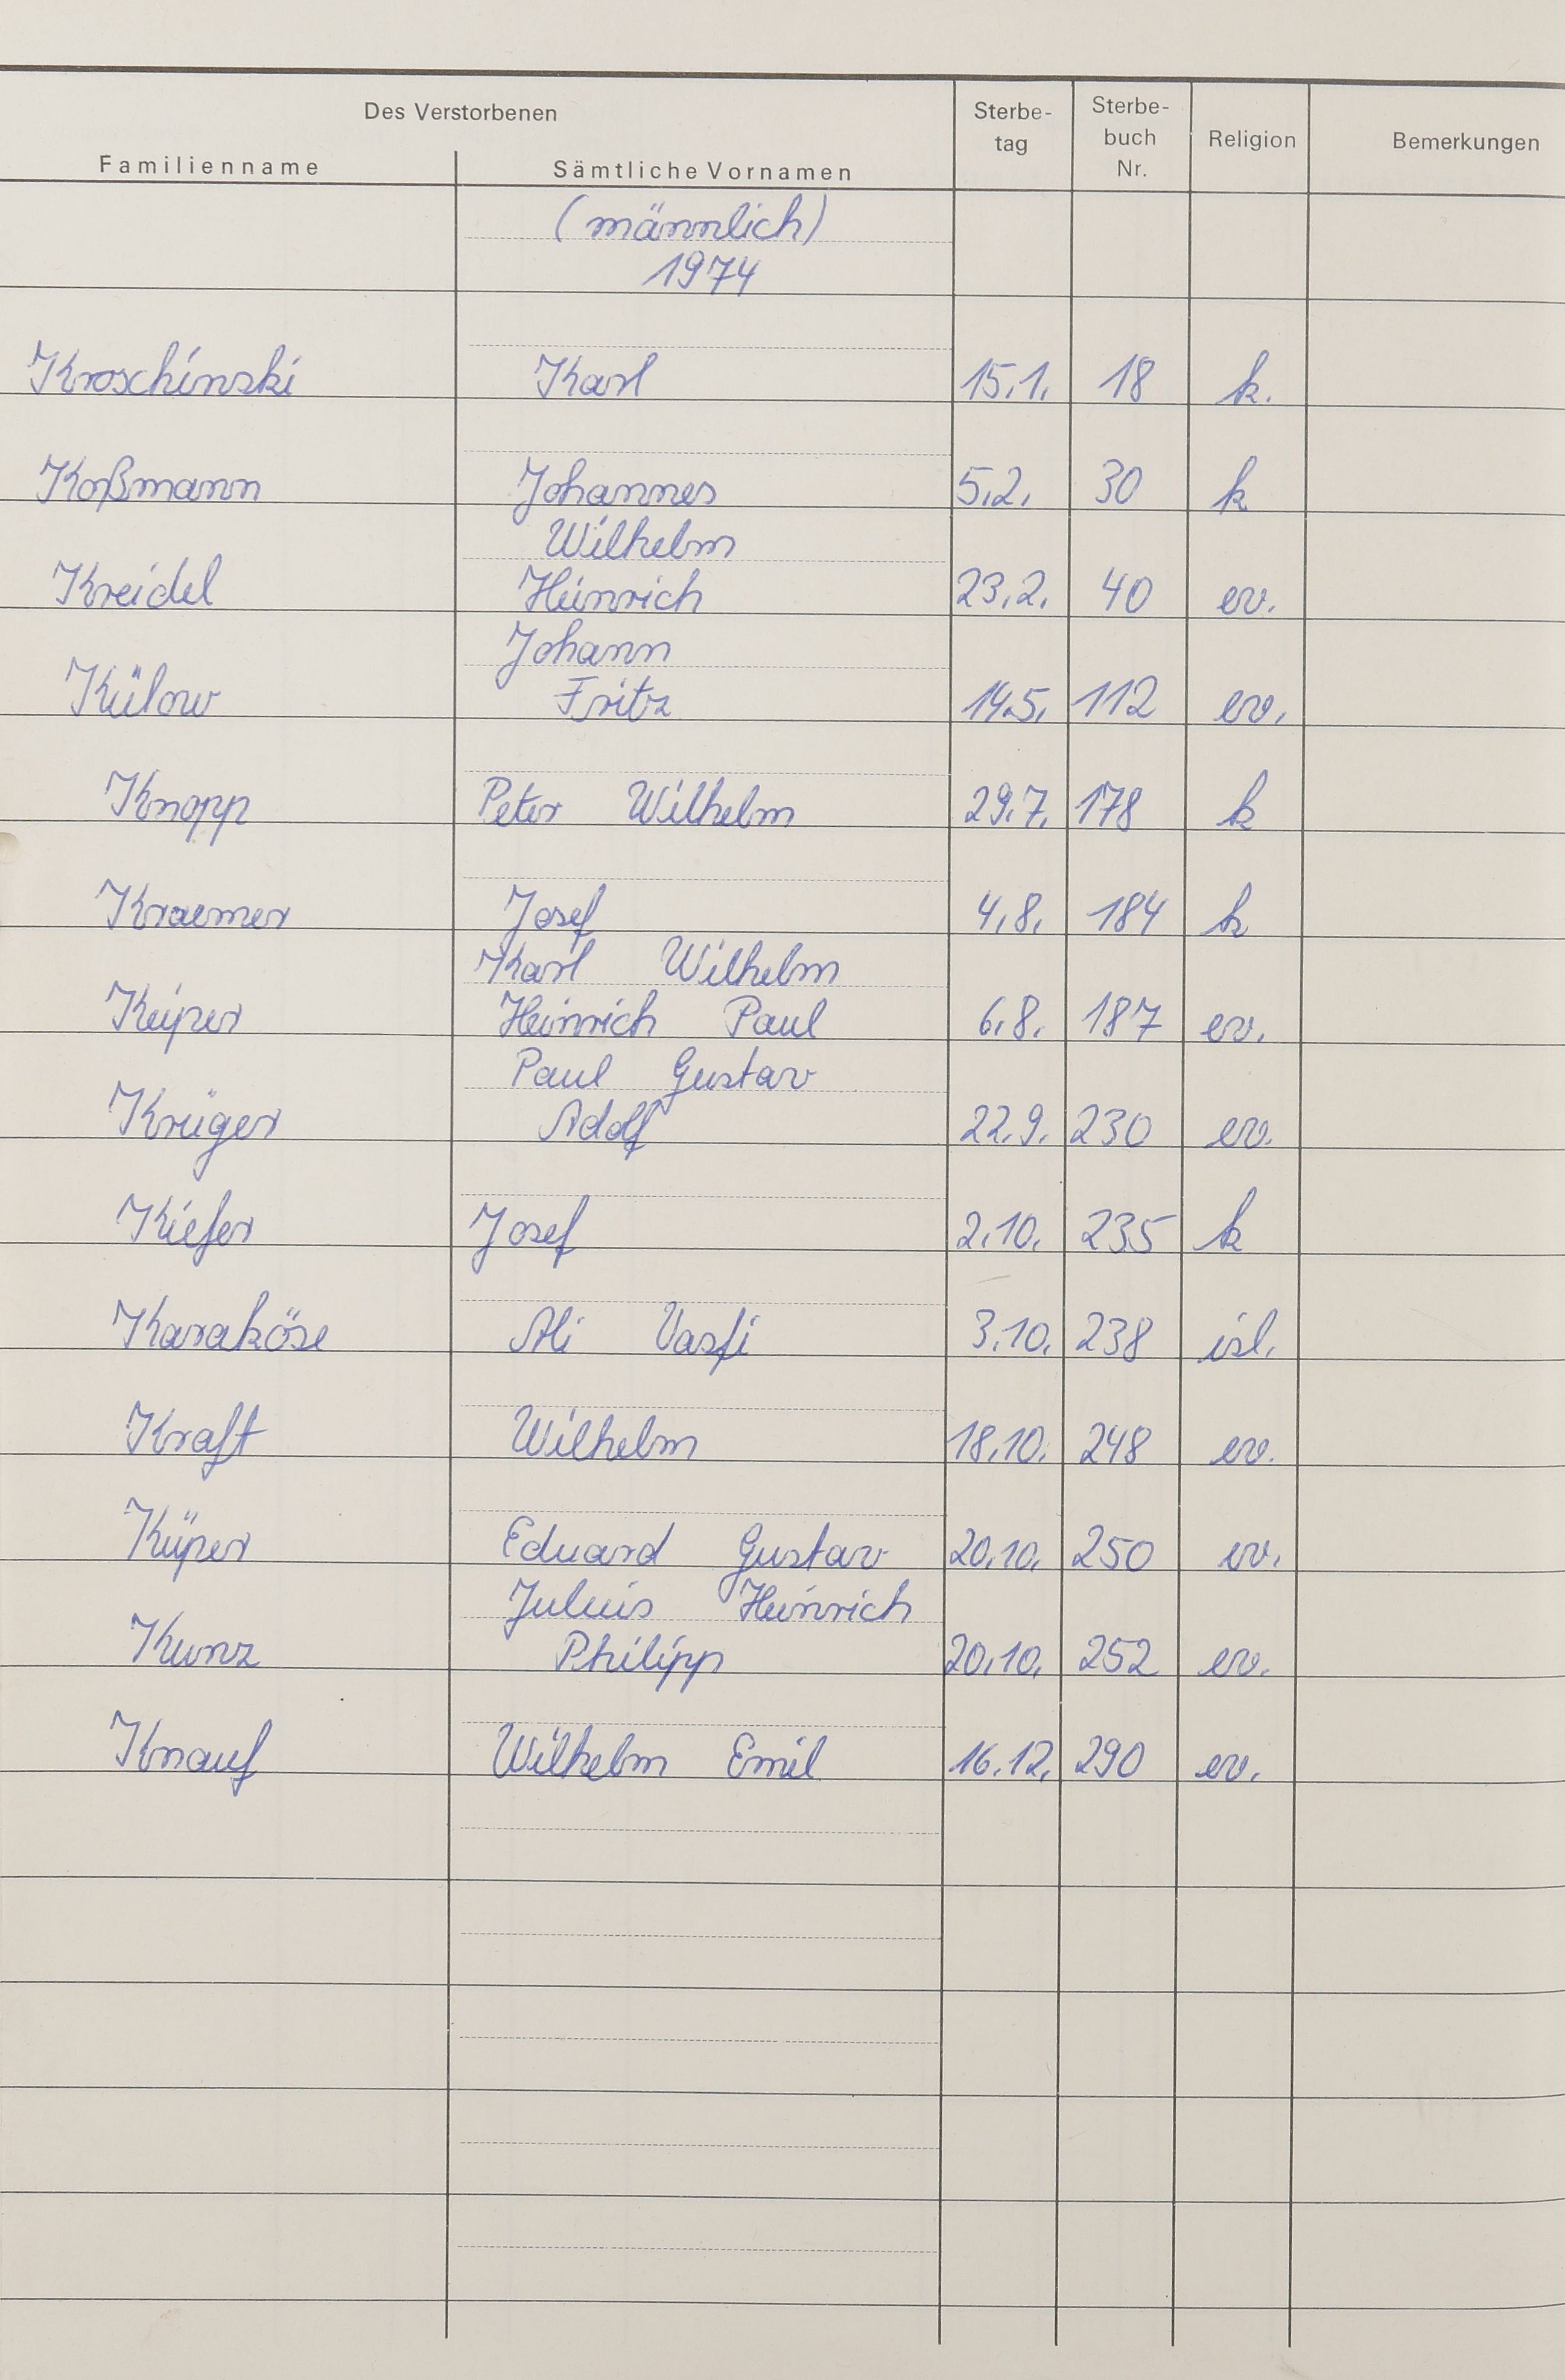 Des Verstorbenen
Familienname Sämtliche Vornamen Sterbe-tag Sterbe-buch Nr. Religion Bemerkungen
(männlich)
1974
Kroschinski Karl 15.1. 18 k.
Koßmann Johannes 5.2. 30 k
Wilhelm
Kreidel Heinrich 23.2. 40 ev.
Johann
Külow Fritz 14.5. 112 ev.
Knopp Peter Wilhelm 29.7. 178 k
Kraemer Josef 4.8. 184 k
Karl Wilhelm
Keiper Heinrich Paul 6.8. 187 ev.
Paul Gustav
Krüger Adolf 22.9. 230 ev.
Kiefer Josef 2.10. 235 k
Karaköse Ali Vasfi 3.10. 238 isl.
Kraft Wilhelm 18.10. 248 ev.
Küper Eduard Gustav 20.10. 250 ev.
Julius Heinrich
Kunz Philipp 20.10. 252 ev.
Knauf Wilhelm Emil 16.12. 290 ev.